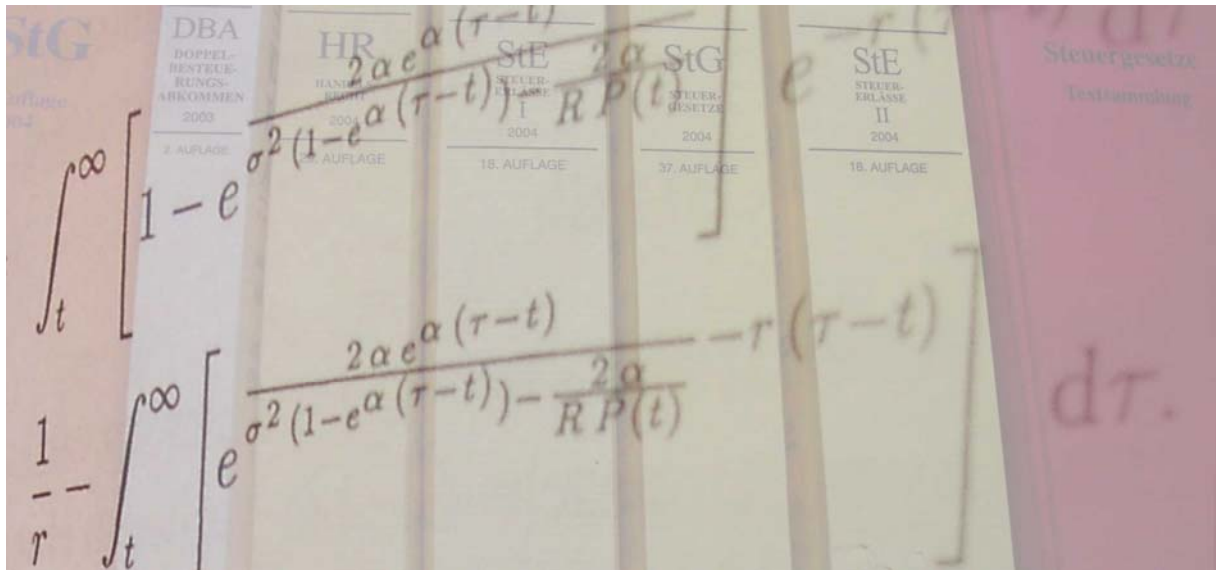 StG
uflage
DBA
DOPPEL-
BESTEUE-
RUNGS-
ABKOMMEN
2003
2. AUFLAGE
HR
2004
AUFLAGE
StE
STEUER-
ERLÄSSE
I
2004
18. AUFLAGE
StG
STEUER-
GESETZE
2004
37. AUFLAGE
StE
STEUER-
ERLÄSSE
II
2004
18. AUFLAGE
Steuergesetze
Textsammlung
∫_t^∞ [1 − e^{\frac{2 α e^{α (τ−t)}}{σ^2 (1−e^{α (τ−t)})−\frac{2 α}{R P(t)}}}] e^{−r (τ−t)} dτ
\frac{1}{r} − ∫_t^∞ [e^{\frac{2 α e^{α (τ−t)}}{σ^2 (1−e^{α (τ−t)})−\frac{2 α}{R P(t)}} −r (τ−t)}] dτ.